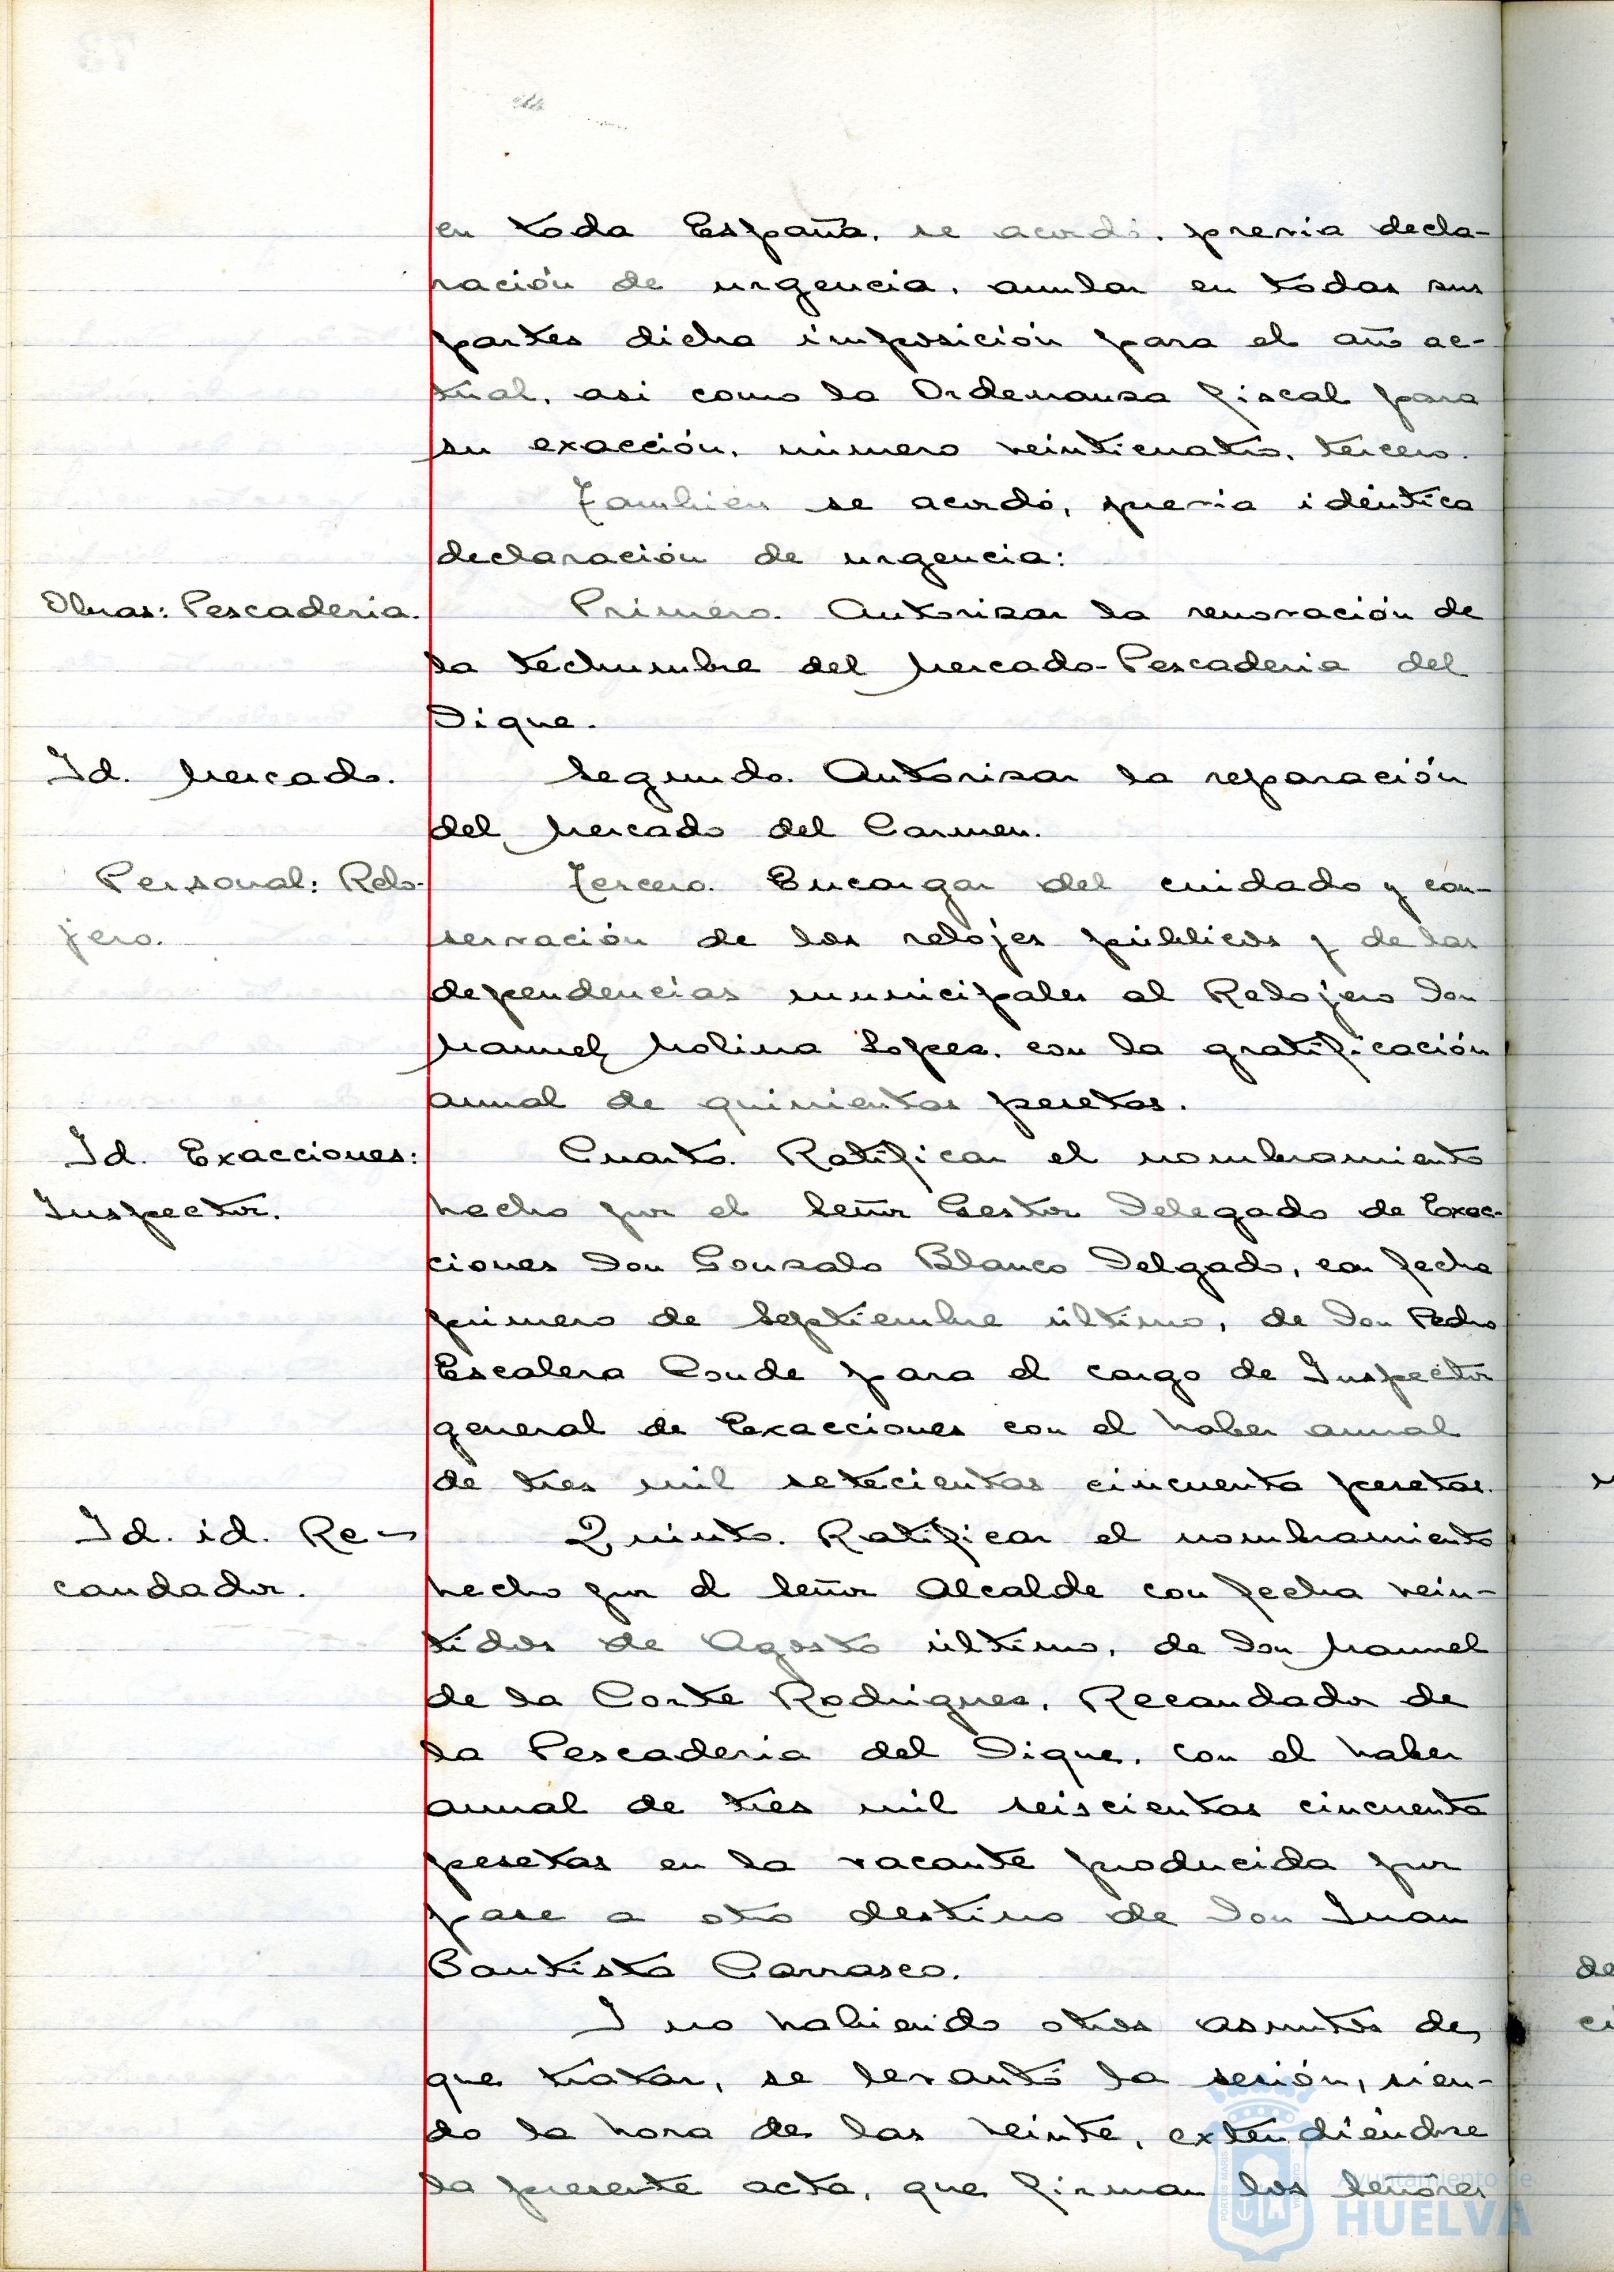 en toda España, se acordó, previa decla-
ración de urgencia, anular en todas sus
partes dicha imposición para el año ac-
tual, asi como la Ordenanza fiscal para
su exacción, número veinticuatro, tercero.
También se acordó, previa idéntica
declaración de urgencia:
Obras: Pescaderia.
Primero. Autorizar la renovación de
la techumbre del Mercado-Pescaderia del
Dique.
Id. Mercado.
Segundo. Autorizar la reparación
del Mercado del Carmen.
Personal: Relo-
jero.
Tercero. Encargar del cuidado y con-
servación de los relojes públicos y de las
dependencias municipales al Relojero Don
Manuel Molina Lopez, con la gratificación
anual de quinientas pesetas.
Id. Exacciones:
Inspector.
Cuarto. Ratificar el nombramiento
hecho por el Señor Gestor Delegado de Exac-
ciones Don Gonzalo Blanco Delgado, con fecha
primero de Septiembre último, de Don Pedro
Escalera Conde para el cargo de Inspector
general de Exacciones con el haber anual
de tres mil setecientas cincuenta pesetas.
Id. id. Re-
caudador.
Quinto. Ratificar el nombramiento
hecho por el Señor Alcalde con fecha vein-
tidos de Agosto último, de Don Manuel
de la Corte Rodriguez, Recaudador de
la Pescaderia del Dique, con el haber
anual de tres mil seiscientas cincuenta
pesetas en la vacante producida por
pase a otro destino de Don Juan
Bautista Carrasco.
Y no habiendo otros asuntos de
que tratar, se levantó la sesión, sien-
do la hora de las veinte, extendiéndose
la presente acta, que firman los señores
Ayuntamiento de
HUELVA